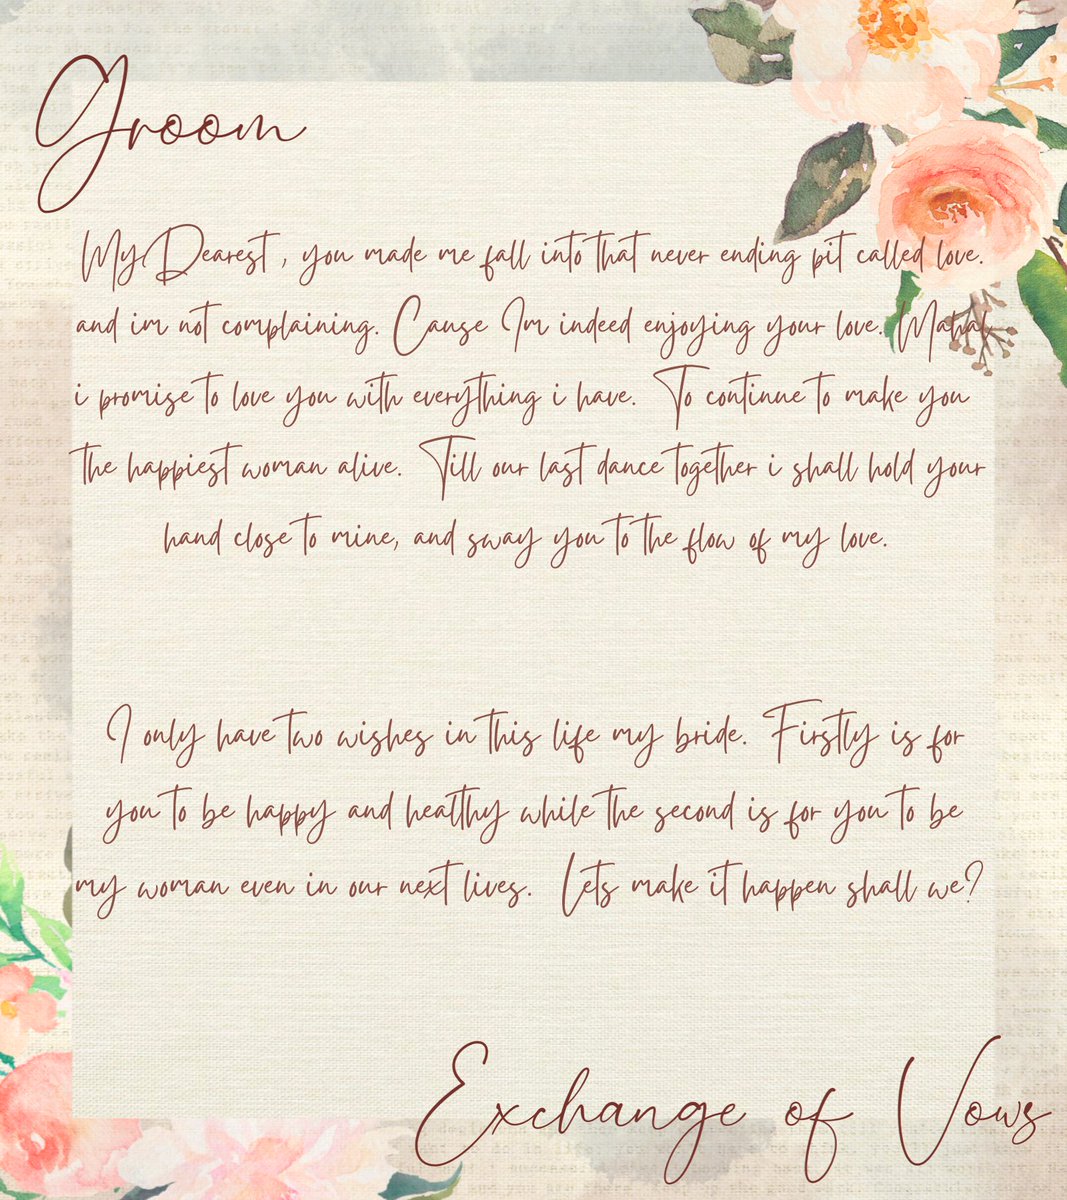 Groom
My Dearest , you made me fall into that never ending pit called love.
and im not complaining. Cause Im indeed enjoying your love. Mahal
i promise to love you with everything i have. To continue to make you
the happiest woman alive. Till our last dance together i shall hold your
hand close to mine, and sway you to the flow of my love.
I only have two wishes in this life my bride. Firstly is for
you to be happy and healthy while the second is for you to be
my woman even in our next lives. Lets make it happen shall we?
Exchange of Vows